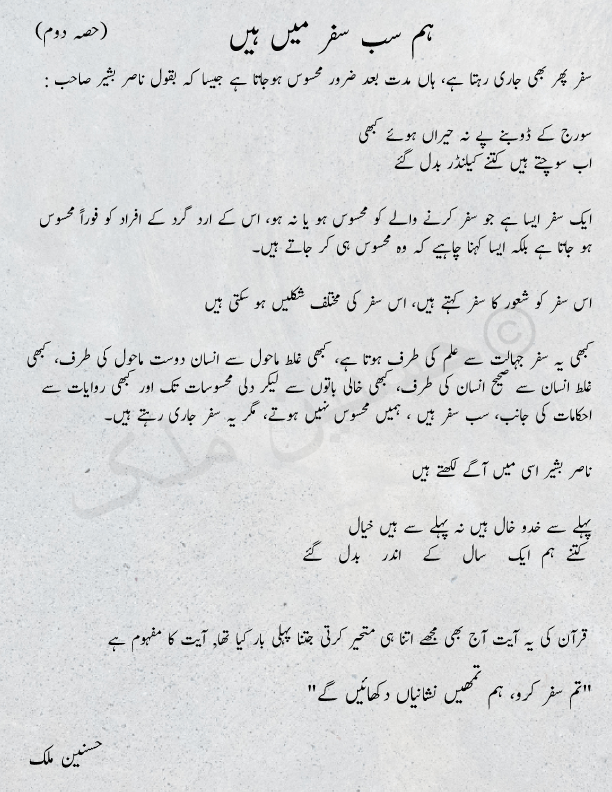 ہم سب سفر میں ہیں
(حصہ دوم)
سفر پھر بھی جاری رہتا ہے، ہاں مدت بعد ضرور محسوس ہوجاتا ہے جیسا کہ بقول ناصر بشیر صاحب :
سورج کے ڈوبنے پے نہ حیراں ہوئے کبھی
اب سوچتے ہیں کتنے کیلنڈر بدل گئے
ایک سفر ایسا ہے جو سفر کرنے والے کو محسوس ہو یا نہ ہو، اس کے ارد گرد کے افراد کو فوراً محسوس
ہو جاتا ہے بلکہ ایسا کہنا چاہیے کہ وہ محسوس ہی کر جاتے ہیں۔
اس سفر کو شعور کا سفر کہتے ہیں، اس سفر کی مختلف شکلیں ہو سکتی ہیں
کبھی یہ سفر جہالت سے علم کی طرف ہوتا ہے، کبھی غلط ماحول سے انسان دوست ماحول کی طرف، کبھی
غلط انسان سے صحیح انسان کی طرف، کبھی خالی باتوں سے لیکر دلی محسوسات تک اور کبھی روایات سے
احکامات کی جانب، سب سفر ہیں ، ہمیں محسوس نہیں ہوتے، مگر یہ سفر جاری رہتے ہیں۔
ناصر بشیر اسی میں آگے لکھتے ہیں
پہلے سے خدو خال ہیں نہ پہلے سے ہیں خیال
کتنے ہم ایک سال کے اندر بدل گئے
قرآن کی یہ آیت آج بھی مجھے اتنا ہی متحیر کرتی جتنا پہلی بار کیا تھا, آیت کا مفہوم ہے
"تم سفر کرو، ہم تمھیں نشانیاں دکھائیں گے"
حسنین ملک
© حسنین ملک